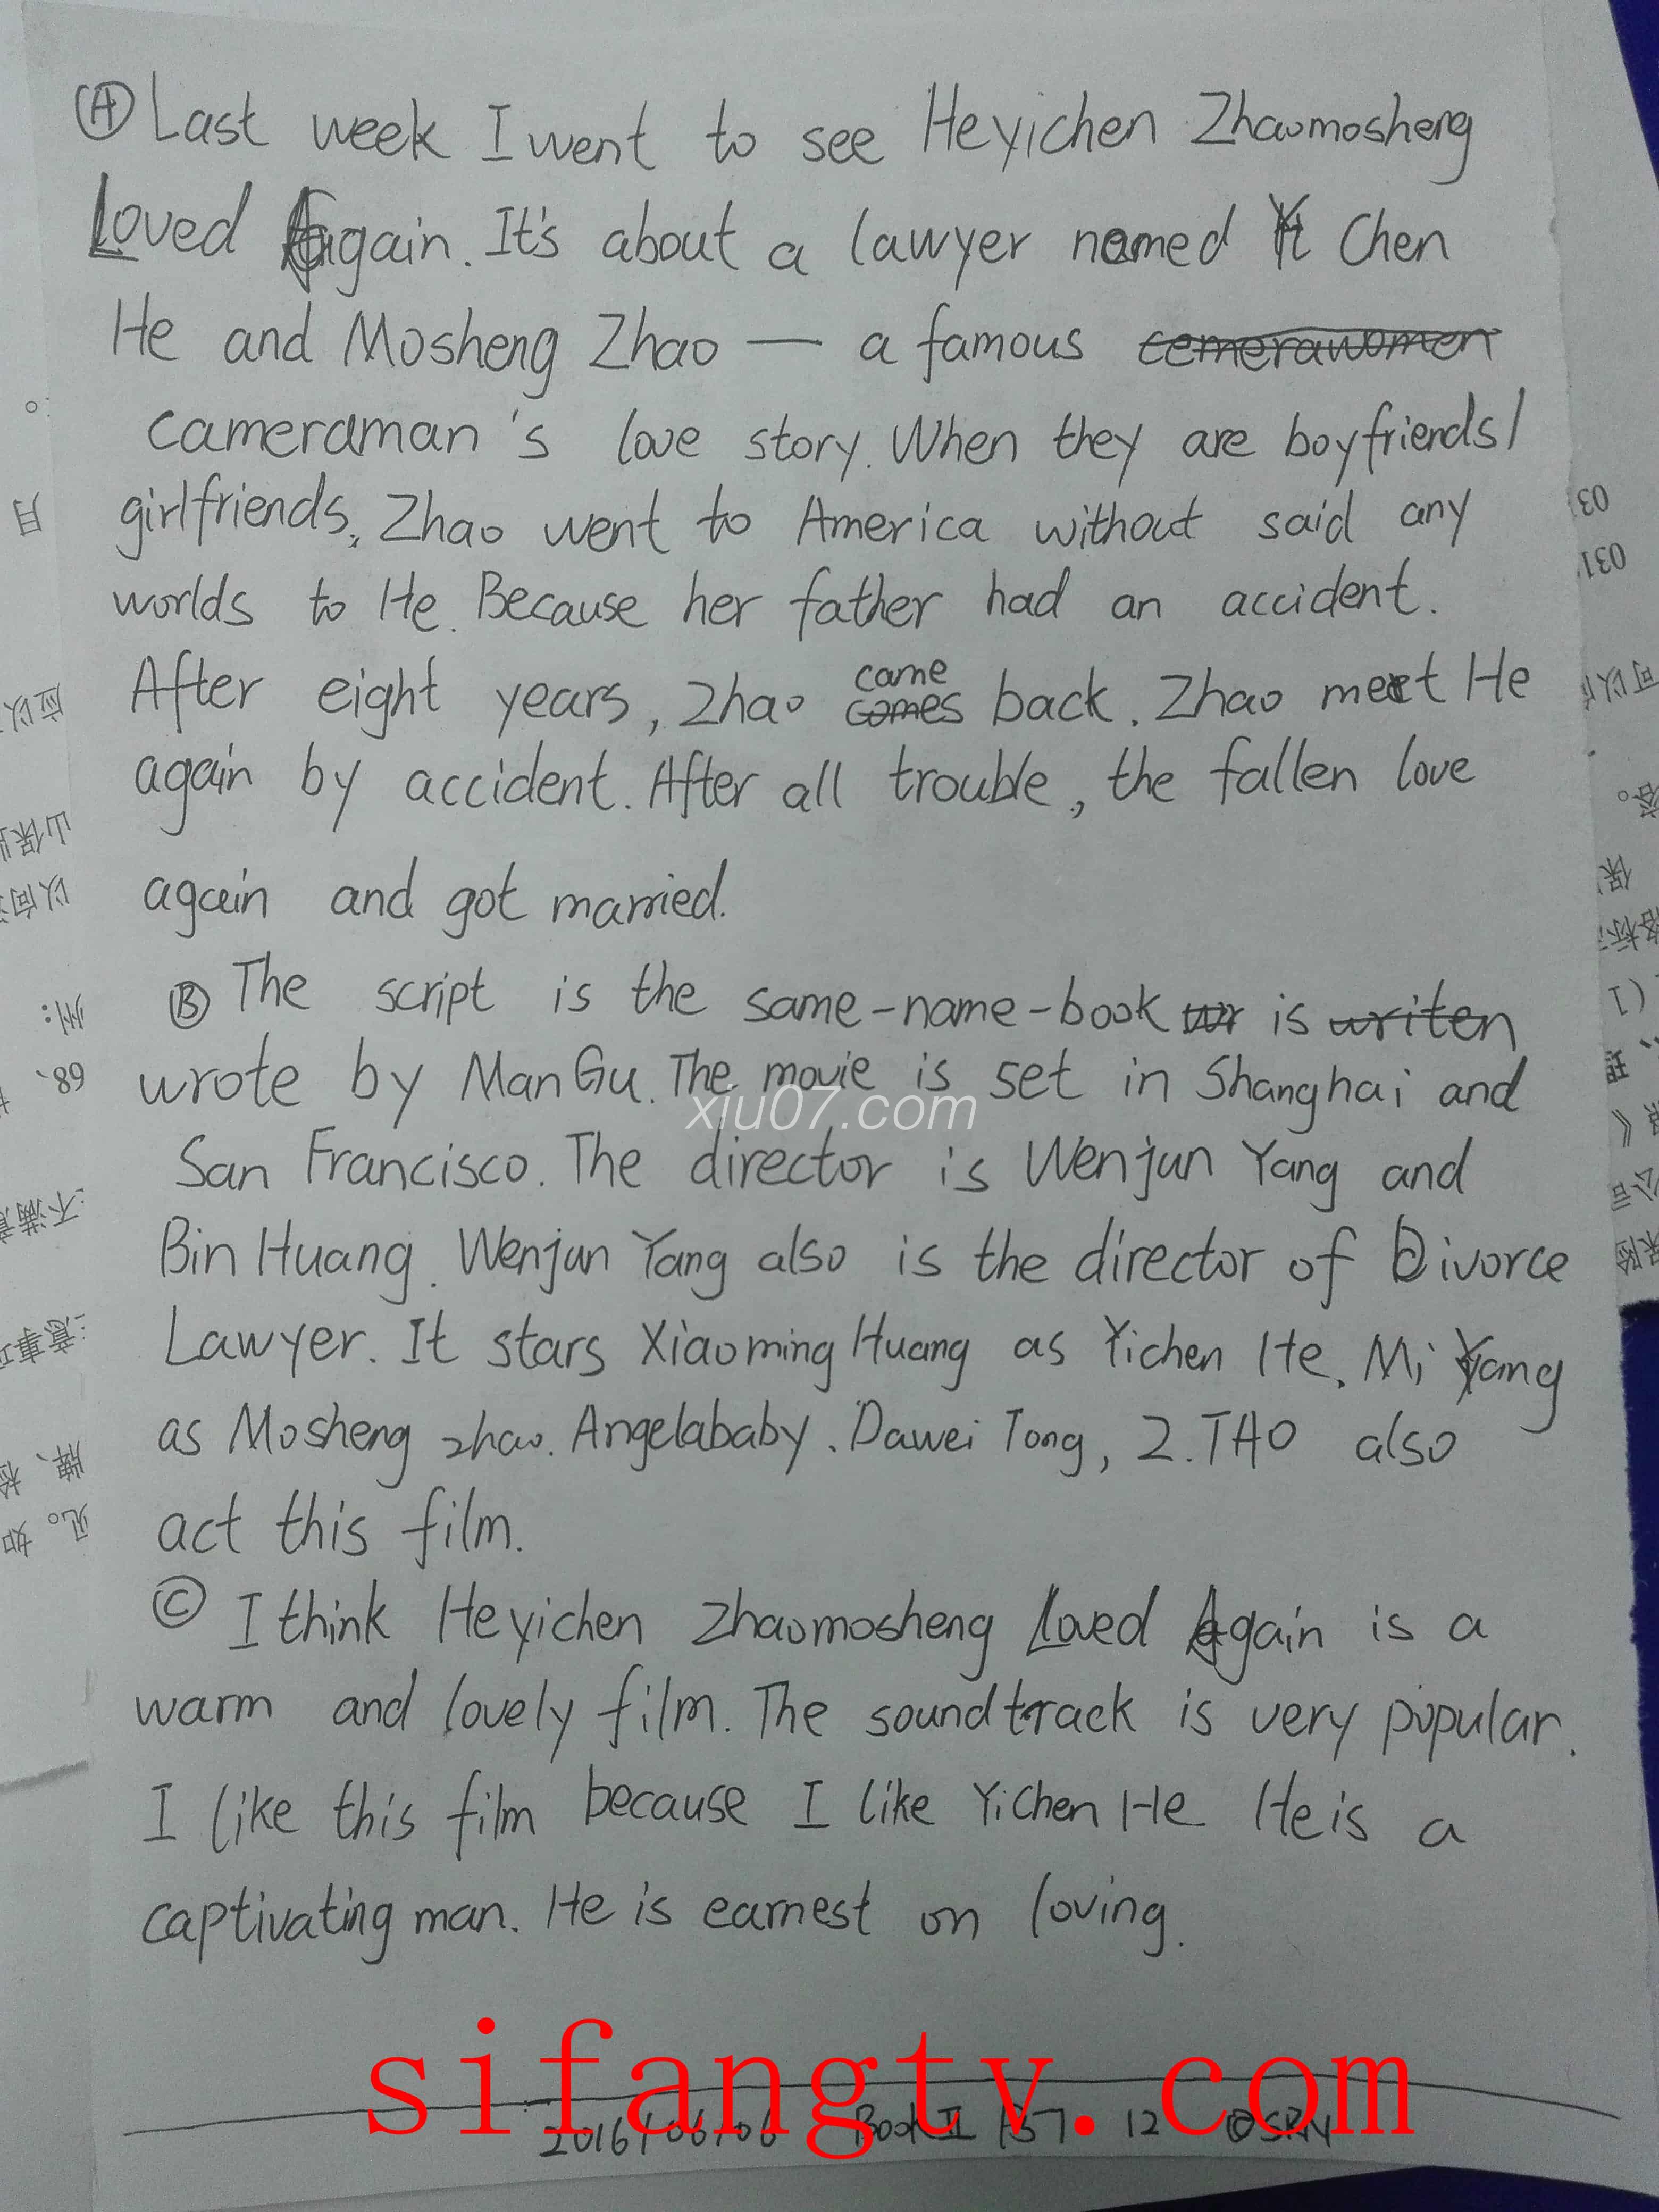 Ⓐ Last week I went to see Heyichen Zhaomosheng
Loved Again. It's about a lawyer named Yi Chen
He and Mosheng Zhao — a famous cemerawomen
cameraman's love story. When they are boyfriends/
girlfriends, Zhao went to America without said any
worlds to He. Because her father had an accident.
After eight years, Zhao comes came back. Zhao meet He
again by accident. After all trouble, the fallen love
again and got married.
Ⓑ The script is the same-name-book wr is writen
wrote by Man Gu. The movie is set in Shanghai and
San Francisco. The director is Wenjun Yang and
Bin Huang. Wenjun Yang also is the director of Divorce
Lawyer. It stars Xiaoming Huang as Yichen He. Mi Yang
as Mosheng zhao. Angelababy. Dawei Tong, Z.TAO also
act this film.
Ⓒ I think Heyichen Zhaomosheng Loved Again is a
warm and lovely film. The soundtrack is very popular.
I like this film because I like Yichen He He is a
captivating man. He is earnest on loving.
2016/06/06 Book II 12
xiu07.com
sifangtv.com
月
应以
山保
以向
州：
68、
不满意
意事项
牌、检
见。如
03
031
可以
容。
保
格标
(1)
理
《
公司
保险